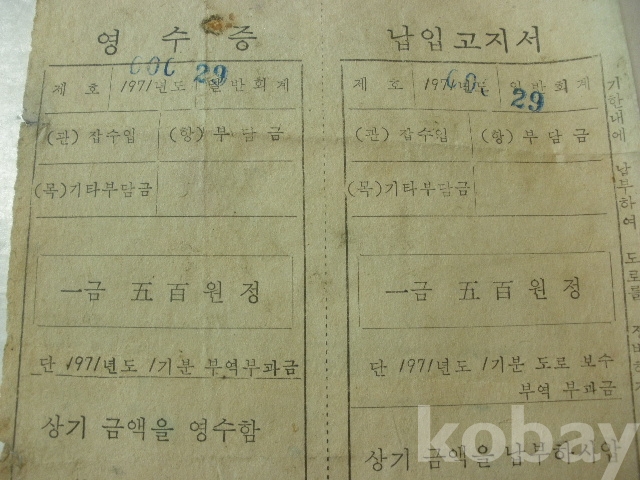 영수증
제 호 1971년도 일반회계
00029
(관) 잡수입 (항) 부담금
(목) 기타부담금
一금 五百원정
단 1971년도 1기분 부역부과금
상기 금액을 영수함
납입고지서
제 호 1971년도 일반회계
29
(관) 잡수입 (항) 부담금
(목) 기타부담금
一금 五百원정
단 1971년도 1기분 도로 보수
부역 부과금
상기 금액을 납부하시압
기한내에 납부하여 도로를
kobay